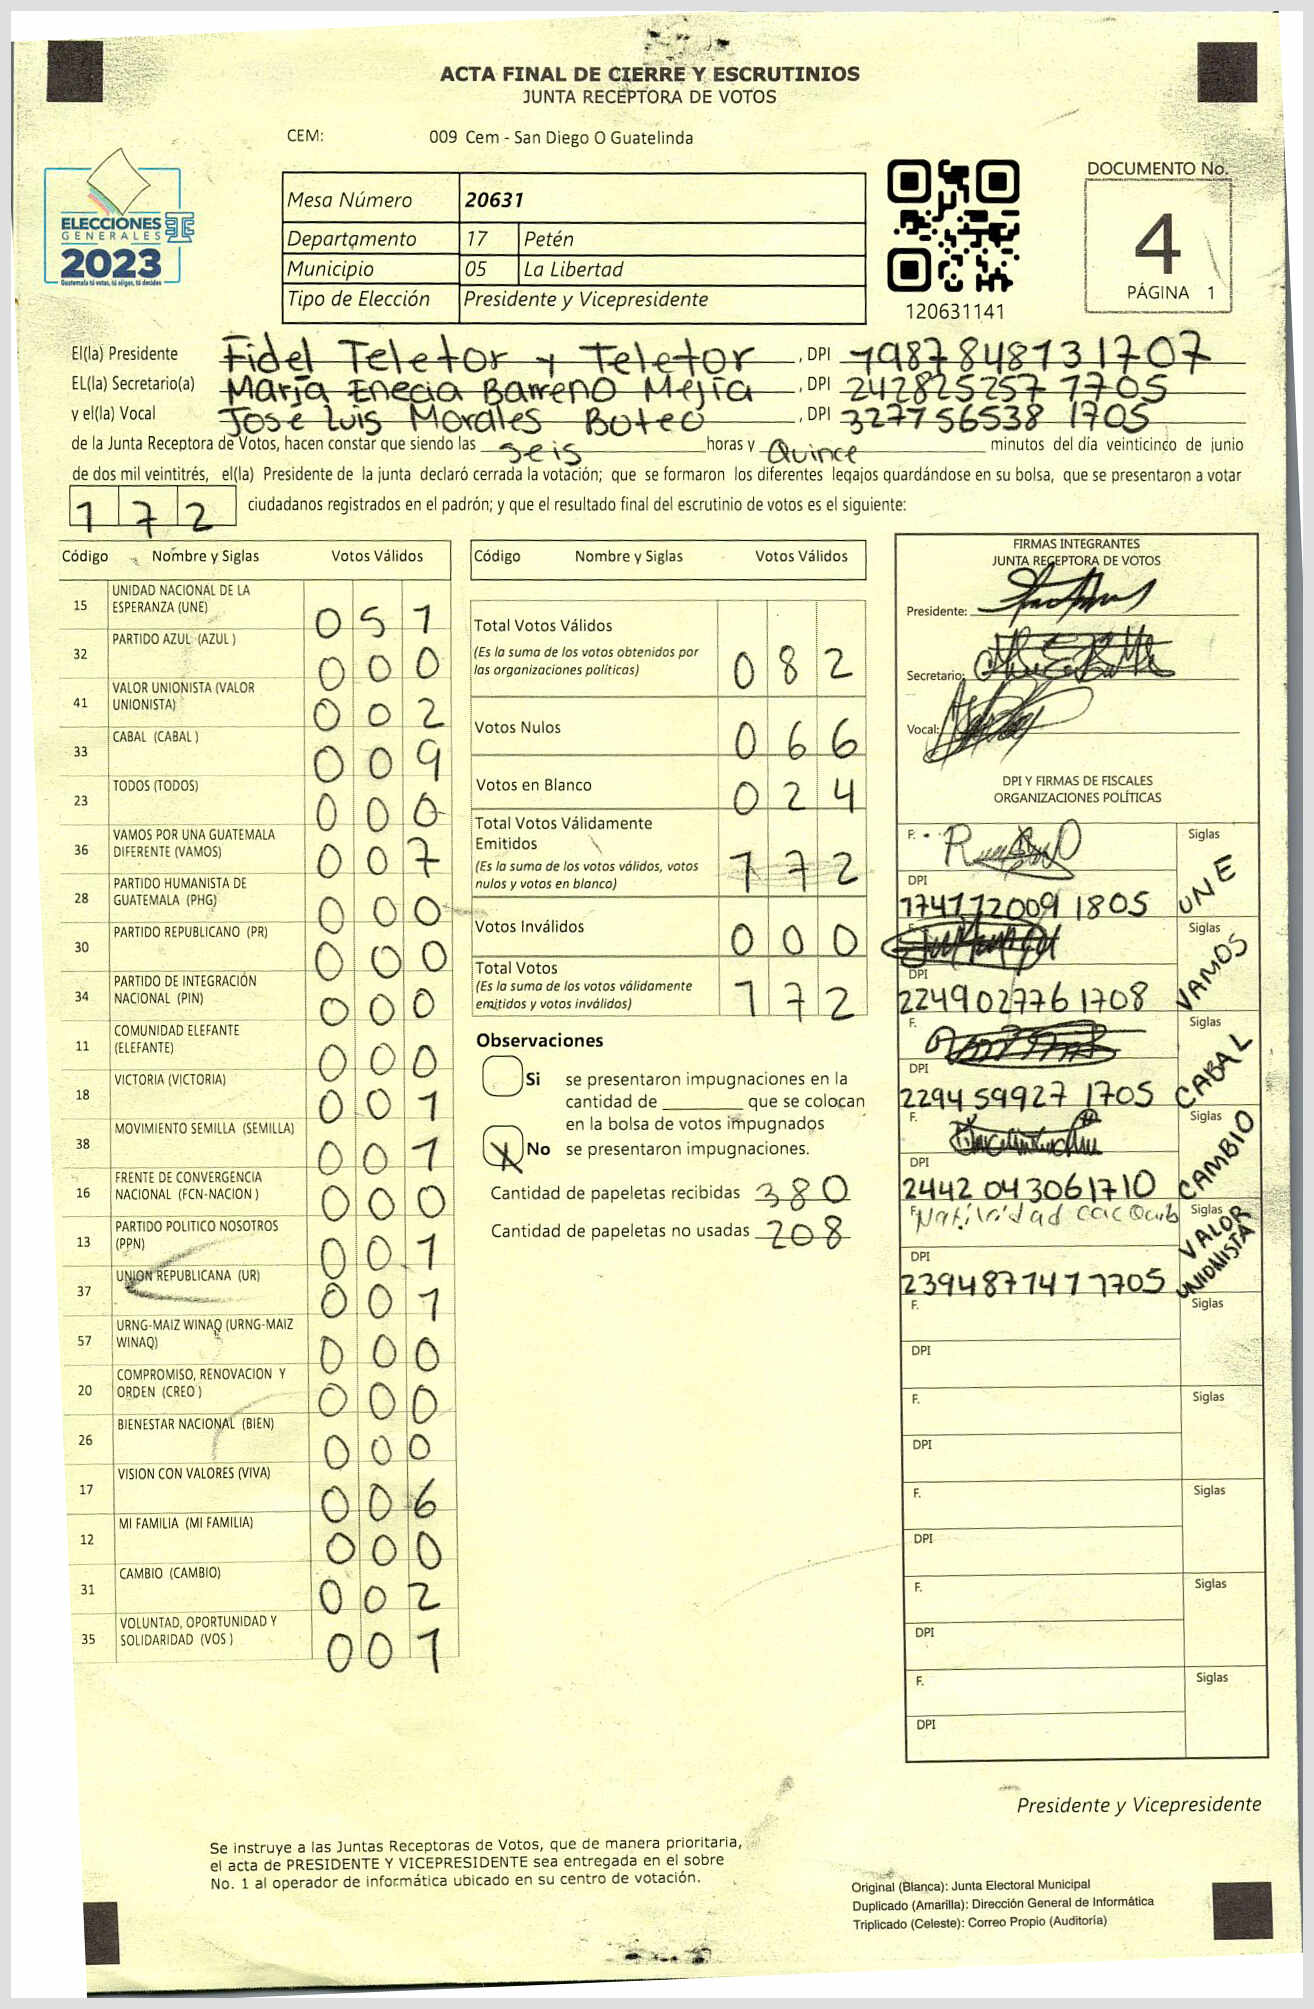 ACTA FINAL DE CIERRE Y ESCRUTINIOS
JUNTA RECEPTORA DE VOTOS
CEM: 009 Cem - San Diego O Guatelinda
ELECCIONES
GENERALES
2023
Guatemala tú votas, tú eliges, tú decides
Mesa Número 20631
Departamento 17 Petén
Municipio 05 La Libertad
Tipo de Elección Presidente y Vicepresidente
120631141
DOCUMENTO No.
4
PÁGINA 1
El(la) Presidente Fidel Teletor y Teletor, DPI 1987848731707
EL(la) Secretario(a) María Enecia Barreno Mejía, DPI 242825257 1705
y el(la) Vocal José Luis Morales Boteo, DPI 327756538 1705
de la Junta Receptora de Votos, hacen constar que siendo las seis horas y Quince minutos del día veinticinco de junio
de dos mil veintitrés, el(la) Presidente de la junta declaró cerrada la votación; que se formaron los diferentes legajos guardándose en su bolsa, que se presentaron a votar
172 ciudadanos registrados en el padrón; y que el resultado final del escrutinio de votos es el siguiente:
Código Nombre y Siglas Votos Válidos
15 UNIDAD NACIONAL DE LA
ESPERANZA (UNE) 051
32 PARTIDO AZUL (AZUL ) 000
41 VALOR UNIONISTA (VALOR
UNIONISTA) 002
33 CABAL (CABAL ) 009
23 TODOS (TODOS) 000
36 VAMOS POR UNA GUATEMALA
DIFERENTE (VAMOS) 007
28 PARTIDO HUMANISTA DE
GUATEMALA (PHG) 000
30 PARTIDO REPUBLICANO (PR) 000
34 PARTIDO DE INTEGRACIÓN
NACIONAL (PIN) 000
11 COMUNIDAD ELEFANTE
(ELEFANTE) 000
18 VICTORIA (VICTORIA) 001
38 MOVIMIENTO SEMILLA (SEMILLA) 001
16 FRENTE DE CONVERGENCIA
NACIONAL (FCN-NACION ) 000
13 PARTIDO POLITICO NOSOTROS
(PPN) 001
37 UNION REPUBLICANA (UR) 001
57 URNG-MAIZ WINAQ (URNG-MAIZ
WINAQ) 000
20 COMPROMISO, RENOVACION Y
ORDEN (CREO ) 000
26 BIENESTAR NACIONAL (BIEN) 000
17 VISION CON VALORES (VIVA) 006
12 MI FAMILIA (MI FAMILIA) 000
31 CAMBIO (CAMBIO) 002
35 VOLUNTAD, OPORTUNIDAD Y
SOLIDARIDAD (VOS ) 001
Código Nombre y Siglas Votos Válidos
Total Votos Válidos
(Es la suma de los votos obtenidos por
las organizaciones políticas) 082
Votos Nulos 066
Votos en Blanco 024
Total Votos Válidamente
Emitidos
(Es la suma de los votos válidos, votos
nulos y votos en blanco) 172
Votos Inválidos 000
Total Votos
(Es la suma de los votos válidamente
emitidos y votos inválidos) 172
Observaciones
Si se presentaron impugnaciones en la
cantidad de ________ que se colocan
en la bolsa de votos impugnados
X No se presentaron impugnaciones.
Cantidad de papeletas recibidas 380
Cantidad de papeletas no usadas 208
FIRMAS INTEGRANTES
JUNTA RECEPTORA DE VOTOS
Presidente:
Secretario:
Vocal:
DPI Y FIRMAS DE FISCALES
ORGANIZACIONES POLÍTICAS
F. Siglas UNE
DPI
174172009 1805
F. Siglas VAMOS
DPI
2249027761708
F. Siglas CABAL
DPI
2294 59927 1705
F. Siglas CAMBIO
DPI
2442 043061710
F. Natividad Siglas VALOR
UNIONISTA
DPI
2394871411705
F. Siglas
DPI
F. Siglas
DPI
F. Siglas
DPI
F. Siglas
DPI
F. Siglas
DPI
Presidente y Vicepresidente
Se instruye a las Juntas Receptoras de Votos, que de manera prioritaria,
el acta de PRESIDENTE Y VICEPRESIDENTE sea entregada en el sobre
No. 1 al operador de informática ubicado en su centro de votación.
Original (Blanca): Junta Electoral Municipal
Duplicado (Amarilla): Dirección General de Informática
Triplicado (Celeste): Correo Propio (Auditoría)